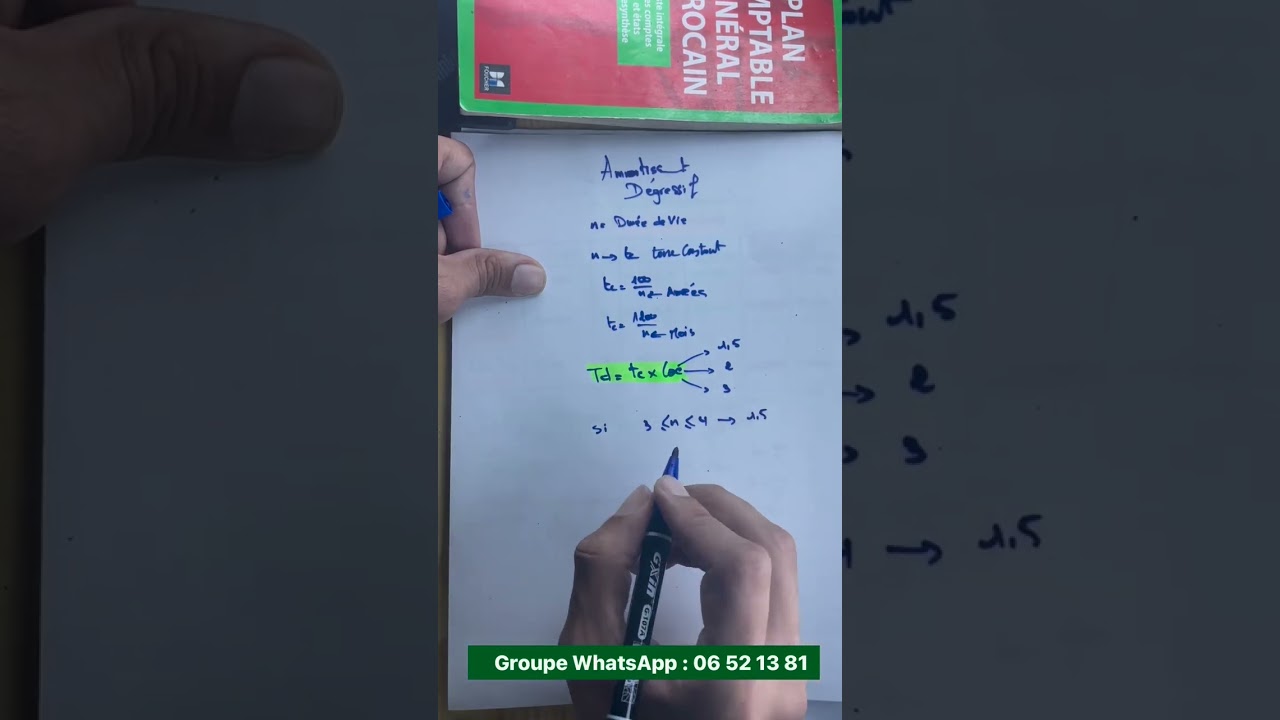 PLAN
MPTABLE
NÉRAL
ROCAIN
te intégrale
es comptes
et états
synthèse
FOUCHER
Amortisent
Dégressif
n= Durée de Vie
n → tc taux Constant
tc = 100/n ← Années
tc = 1200/n ← Mois
Td = tc x Coe → 1,5
→ 2
→ 3
si 3 ≤ n ≤ 4 → 1,5
GXin G-107A
Groupe WhatsApp : 06 52 13 81
1,5
2
3
→ 1,5